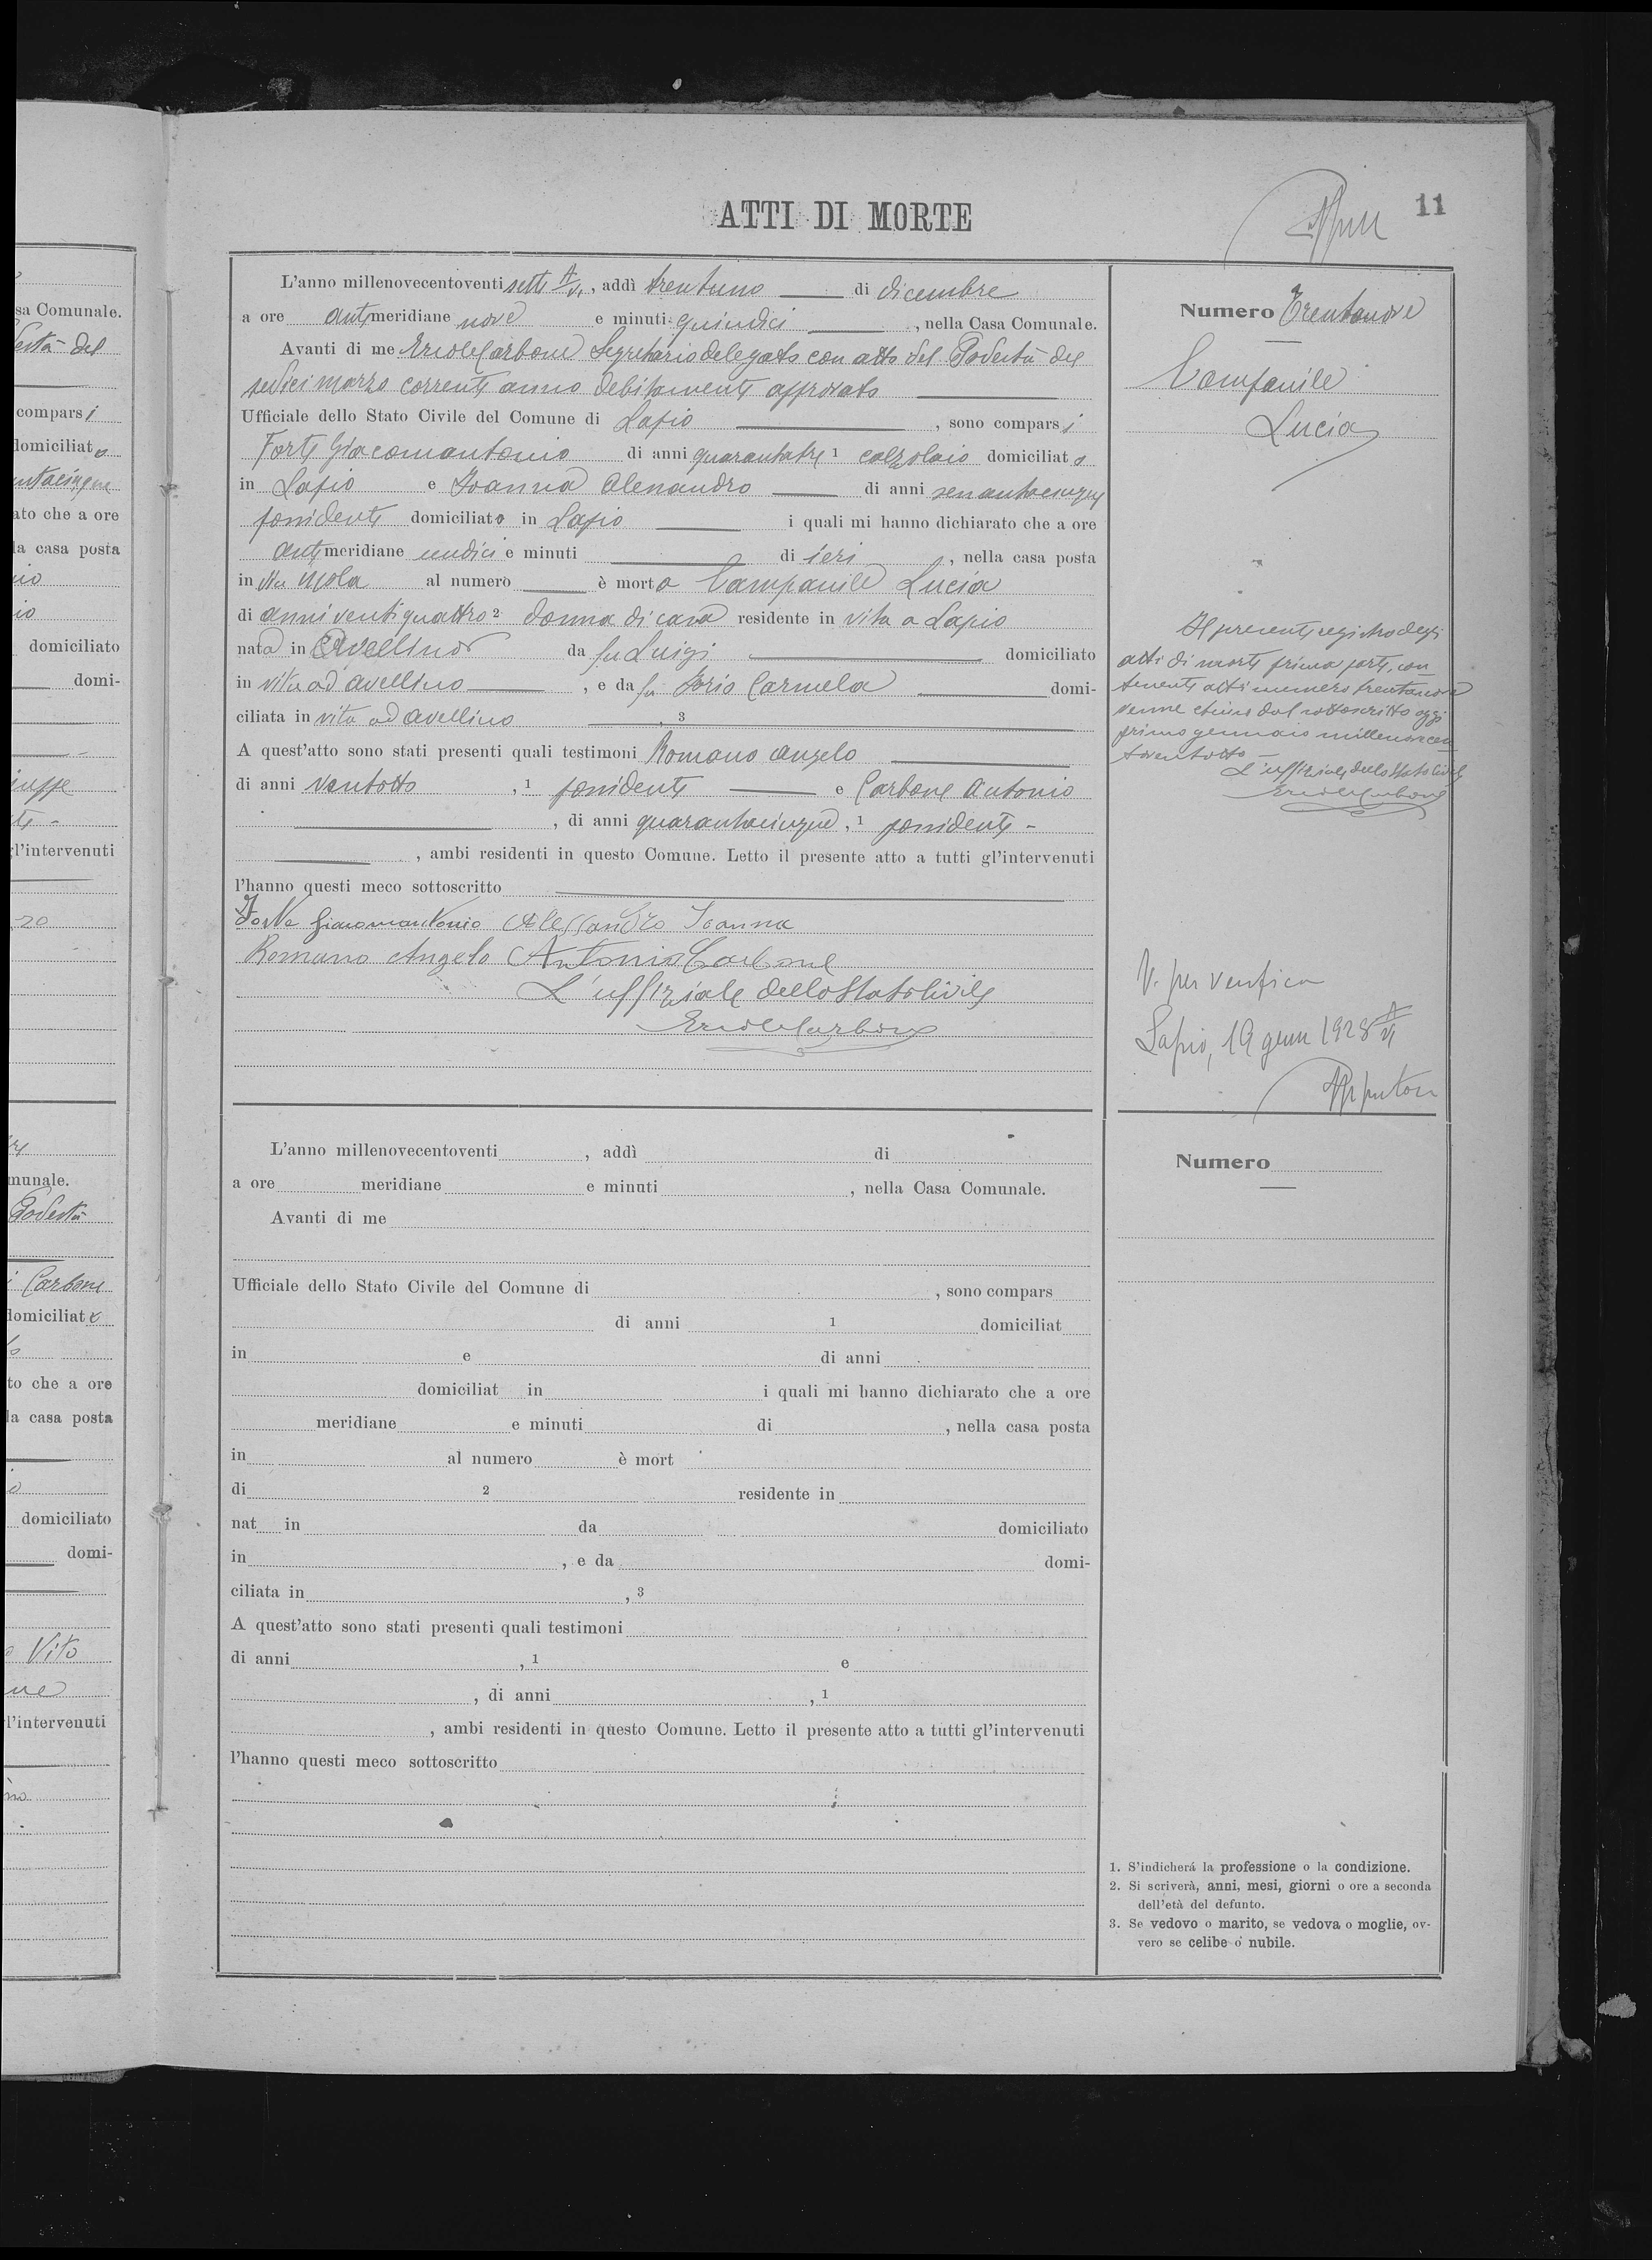 sa Comunale.
compars i
domiciliat o
ato che a ore
la casa posta
domiciliato
domi-
l'intervenuti
munale.
Podestà
Carbone
domiciliat
to che a ore
la casa posta
domiciliato
domi-
Vito
l'intervenuti
ATTI DI MORTE
11
L'anno millenovecentoventi sette A/VI, addì trentuno di dicembre
a ore antimeridiane nove e minuti quindici, nella Casa Comunale.
Avanti di me Ercole Carbone Segretario delegato con atto del Podestà del
sedici marzo corrente anno debitamente approvato
Ufficiale dello Stato Civile del Comune di Lapio, sono compars i
Forte Giacomantonio di anni quarantatre 1 calzolaio domiciliat o
in Lapio e Ioanna Alessandro di anni sessantacinque
possidente domiciliato in Lapio i quali mi hanno dichiarato che a ore
antimeridiane undici e minuti di ieri, nella casa posta
in Via Mola al numero è morta Campanile Lucia
di anni ventiquattro 2 donna di casa residente in vita a Lapio
nata in Avellino da fu Luigi domiciliato
in vita ad Avellino, e da fu Iorio Carmela domi-
ciliata in vita ad Avellino, 3
A quest'atto sono stati presenti quali testimoni Romano Angelo
di anni ventotto, 1 possidente e Carbone Antonio
, di anni quarantacinque, 1 possidente -
, ambi residenti in questo Comune. Letto il presente atto a tutti gl'intervenuti
l'hanno questi meco sottoscritto
Forte Giacomantonio Alessandro Ioanna
Romano Angelo Antonio Carbone
L'uffiziale dello Stato Civile
Ercole Carbone
Numero Trentanove
Campanile
Lucia
Il presente registro degli
atti di morte prima parte, con
tenente atti numero trentanove
venne chiuso dal sottoscritto oggi
primo gennaio millenovecen
toventotto -
L'uffiziale dello Stato Civile
Ercole Carbone
V. per verifica
Lapio, 19 genn 1928 A/VI
L'anno millenovecentoventi, addì di
a ore meridiane e minuti, nella Casa Comunale.
Avanti di me
Ufficiale dello Stato Civile del Comune di, sono compars
di anni 1 domiciliat
in e di anni
domiciliat in i quali mi hanno dichiarato che a ore
meridiane e minuti di, nella casa posta
in al numero è mort
di 2 residente in
nat in da domiciliato
in, e da domi-
ciliata in, 3
A quest'atto sono stati presenti quali testimoni
di anni, 1 e
, di anni, 1
, ambi residenti in questo Comune. Letto il presente atto a tutti gl'intervenuti
l'hanno questi meco sottoscritto
Numero
1. S'indicherá la professione o la condizione.
2. Si scriverà, anni, mesi, giorni o ore a seconda
dell'età del defunto.
3. Se vedovo o marito, se vedova o moglie, ov-
vero se celibe o nubile.